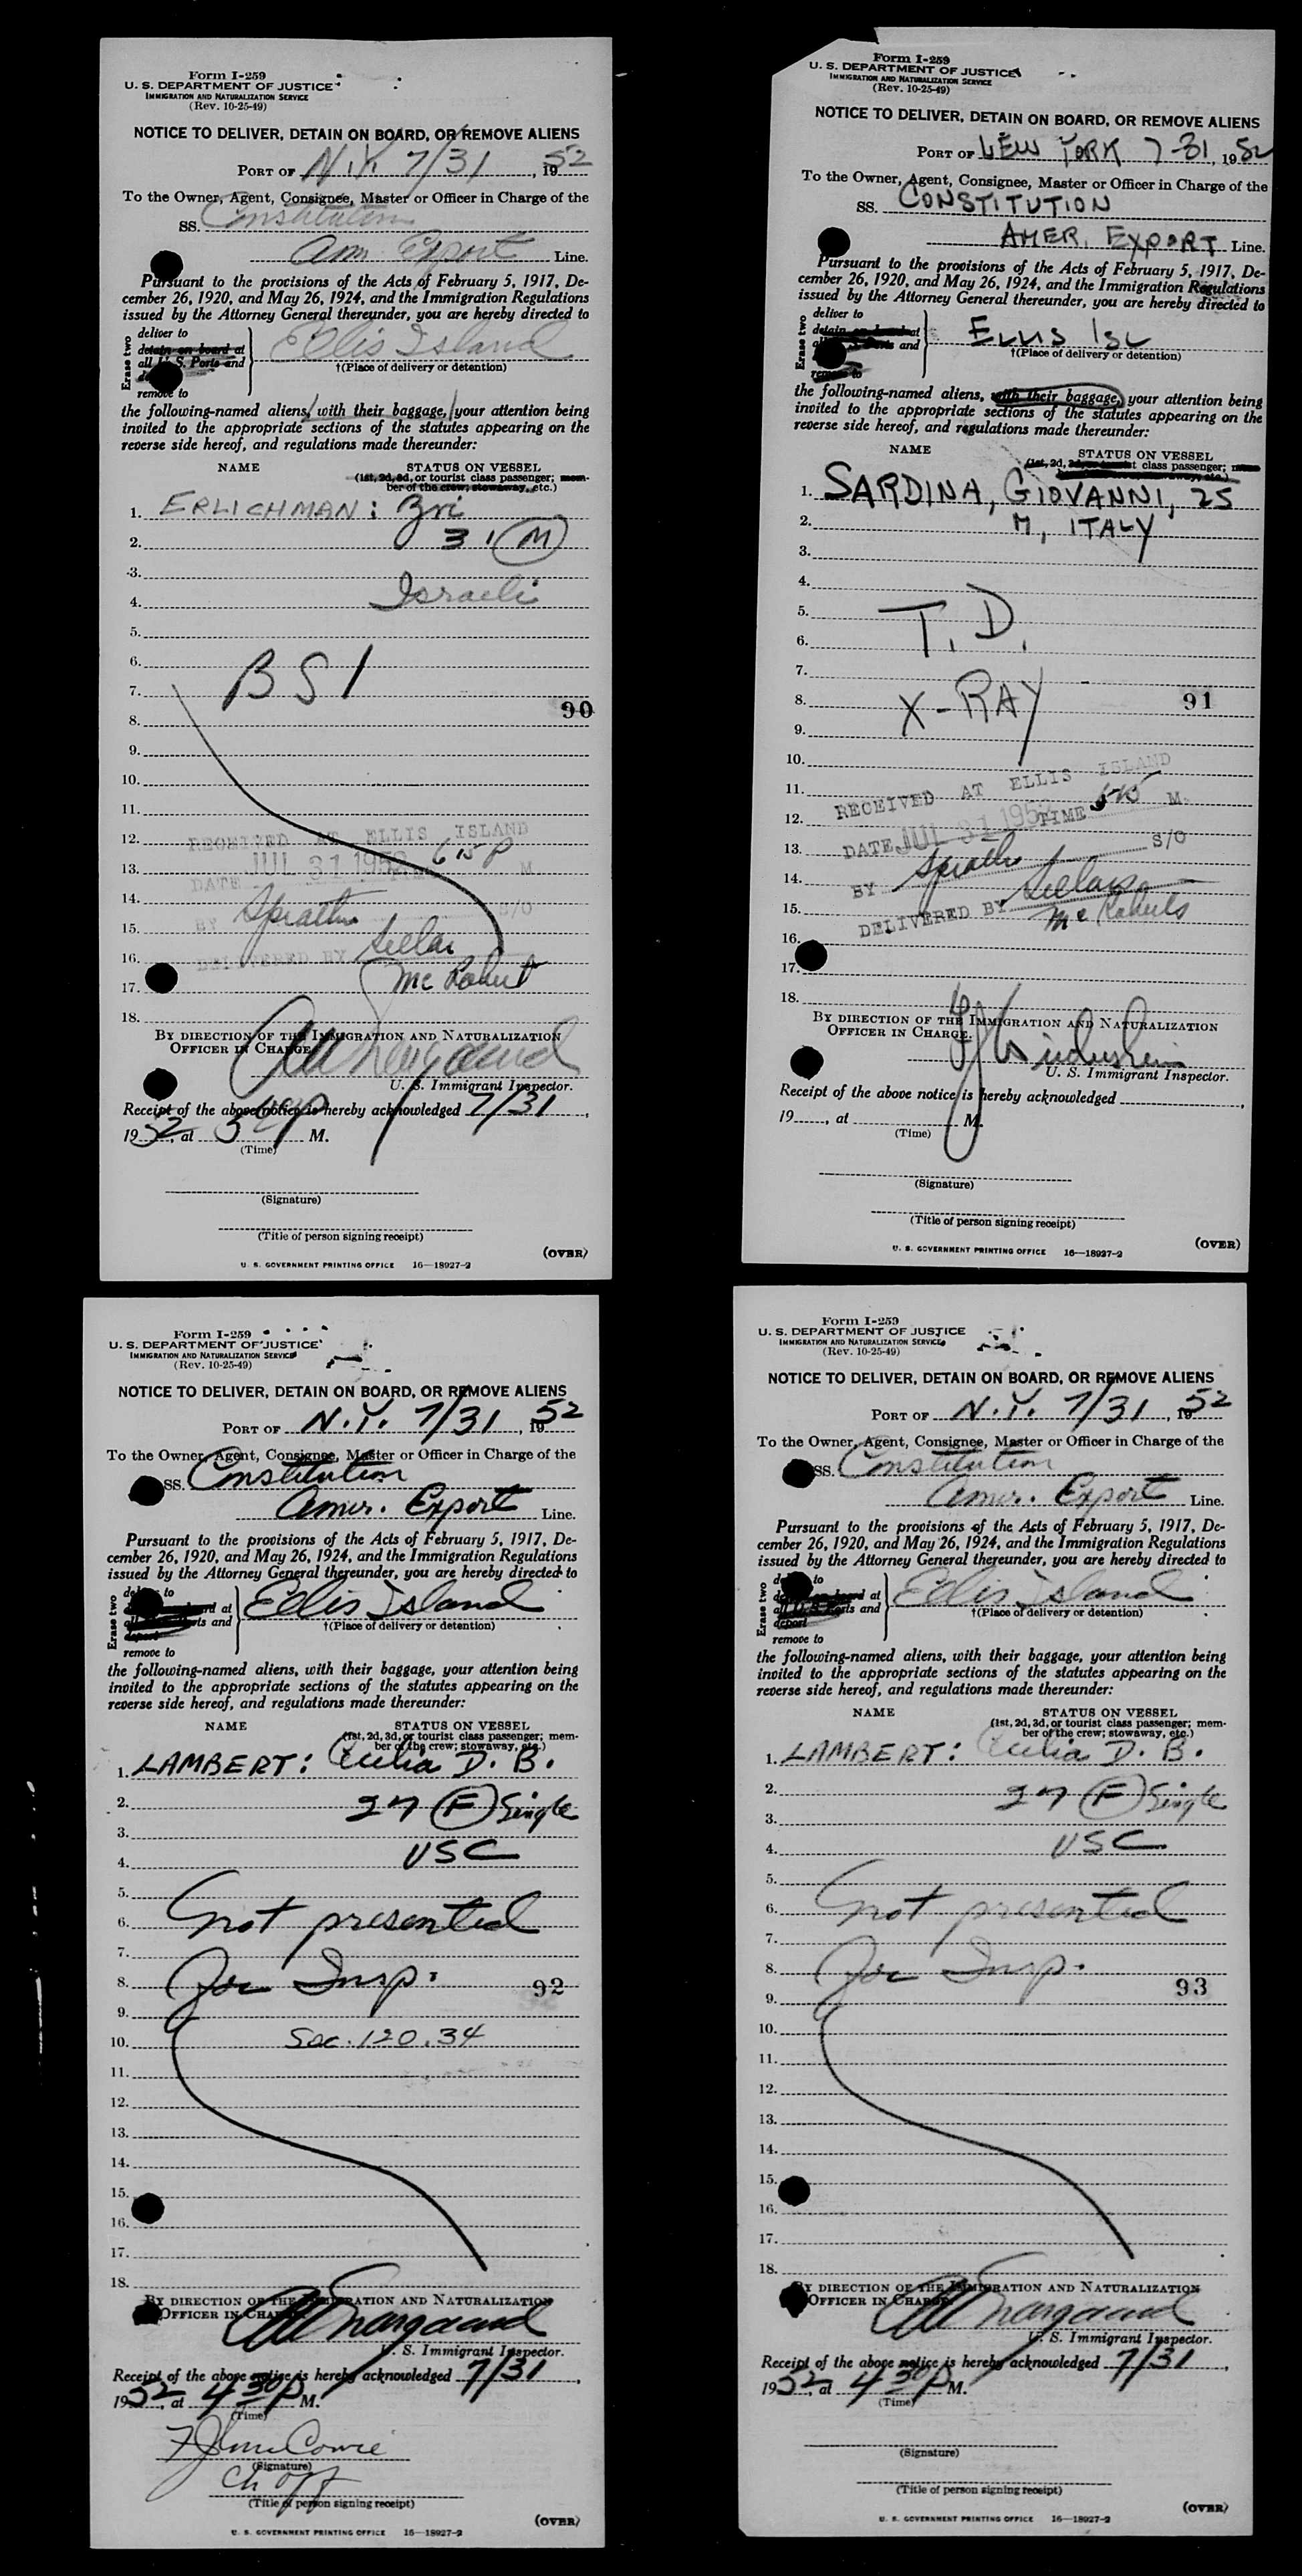 Form I-259
U. S. DEPARTMENT OF JUSTICE
IMMIGRATION AND NATURALIZATION SERVICE
(Rev. 10-25-49)
NOTICE TO DELIVER, DETAIN ON BOARD, OR REMOVE ALIENS
PORT OF N.Y. 7/31, 1952
To the Owner, Agent, Consignee, Master or Officer in Charge of the
SS. Constitution
Am. Export Line.
Pursuant to the provisions of the Acts of February 5, 1917, De-
cember 26, 1920, and May 26, 1924, and the Immigration Regulations
issued by the Attorney General thereunder, you are hereby directed to
Erase two
deliver to
detain on board at
all U. S. Ports and
remove to
Ellis Island
†(Place of delivery or detention)
the following-named aliens, with their baggage, your attention being
invited to the appropriate sections of the statutes appearing on the
reverse side hereof, and regulations made thereunder:
NAME STATUS ON VESSEL
(1st, 2d, 3d, or tourist class passenger; mem-
ber of the crew; stowaway, etc.)
1. ERLICHMAN: Zvi
2. 31 (M)
3.
4. Israeli
5.
6. BSI
7.
90
8.
9.
10.
11.
12. RECEIVED AT ELLIS ISLAND
13. DATE JUL 31 1952 6 15 P M
14.
BY S/O
15.
16. DELIVERED BY
17.
18.
BY DIRECTION OF THE IMMIGRATION AND NATURALIZATION
OFFICER IN CHARGE.
U. S. Immigrant Inspector.
Receipt of the above notice is hereby acknowledged 7/31,
1952, at M.
(Time)
(Signature)
(Title of person signing receipt)
(OVER)
U. S. GOVERNMENT PRINTING OFFICE 16—18927-2
Form I-259
U. S. DEPARTMENT OF JUSTICE
IMMIGRATION AND NATURALIZATION SERVICE
(Rev. 10-25-49)
NOTICE TO DELIVER, DETAIN ON BOARD, OR REMOVE ALIENS
PORT OF NEW YORK 7-31, 1952
To the Owner, Agent, Consignee, Master or Officer in Charge of the
SS. CONSTITUTION
AMER. EXPORT Line.
Pursuant to the provisions of the Acts of February 5, 1917, De-
cember 26, 1920, and May 26, 1924, and the Immigration Regulations
issued by the Attorney General thereunder, you are hereby directed to
Erase two
deliver to
detain on board at
and
remove to
ELLIS ISL
†(Place of delivery or detention)
the following-named aliens, with their baggage, your attention being
invited to the appropriate sections of the statutes appearing on the
reverse side hereof, and regulations made thereunder:
NAME STATUS ON VESSEL
(1st, 2d, 3d, or tourist class passenger;
1. SARDINA, GIOVANNI, 25
2. M, ITALY
3.
4.
5. T. D.
6.
7.
8. X-RAY 91
9.
10.
11. RECEIVED AT ELLIS ISLAND
12. DATE JUL 31 1952 TIME M.
13. S/O
14. BY
15. DELIVERED BY
16.
17.
18.
BY DIRECTION OF THE IMMIGRATION AND NATURALIZATION
OFFICER IN CHARGE.
U. S. Immigrant Inspector.
Receipt of the above notice is hereby acknowledged
19, at M.
(Time)
(Signature)
(Title of person signing receipt)
(OVER)
U. S. GOVERNMENT PRINTING OFFICE 16—18927-2
Form I-259
U. S. DEPARTMENT OF JUSTICE
IMMIGRATION AND NATURALIZATION SERVICE
(Rev. 10-25-49)
NOTICE TO DELIVER, DETAIN ON BOARD, OR REMOVE ALIENS
PORT OF N.Y. 7/31, 1952
To the Owner, Agent, Consignee, Master or Officer in Charge of the
SS. Constitution
Amer. Export Line.
Pursuant to the provisions of the Acts of February 5, 1917, De-
cember 26, 1920, and May 26, 1924, and the Immigration Regulations
issued by the Attorney General thereunder, you are hereby directed to
Erase two
to
at
and
deport
remove to
Ellis Island
†(Place of delivery or detention)
the following-named aliens, with their baggage, your attention being
invited to the appropriate sections of the statutes appearing on the
reverse side hereof, and regulations made thereunder:
NAME STATUS ON VESSEL
(1st, 2d, 3d, or tourist class passenger; mem-
ber of the crew; stowaway, etc.)
1. LAMBERT: D. B.
2. 27 (F) Single
3.
4. USC
5.
6. not presented
7.
8. for Insp. 92
9.
10. Sec. 120.34
11.
12.
13.
14.
15.
16.
17.
18.
BY DIRECTION OF THE IMMIGRATION AND NATURALIZATION
OFFICER IN CHARGE.
U. S. Immigrant Inspector.
Receipt of the above notice is hereby acknowledged 7/31,
1952, at 4 30 P M.
(Time)
(Signature)
Ch Off
(Title of person signing receipt)
(OVER)
U. S. GOVERNMENT PRINTING OFFICE 16—18927-2
Form I-259
U. S. DEPARTMENT OF JUSTICE
IMMIGRATION AND NATURALIZATION SERVICE
(Rev. 10-25-49)
NOTICE TO DELIVER, DETAIN ON BOARD, OR REMOVE ALIENS
PORT OF N.Y. 7/31, 1952
To the Owner, Agent, Consignee, Master or Officer in Charge of the
SS. Constitution
Amer. Export Line.
Pursuant to the provisions of the Acts of February 5, 1917, De-
cember 26, 1920, and May 26, 1924, and the Immigration Regulations
issued by the Attorney General thereunder, you are hereby directed to
Erase two
to
at
all U. S. Ports and
deport
remove to
Ellis Island
†(Place of delivery or detention)
the following-named aliens, with their baggage, your attention being
invited to the appropriate sections of the statutes appearing on the
reverse side hereof, and regulations made thereunder:
NAME STATUS ON VESSEL
(1st, 2d, 3d, or tourist class passenger; mem-
ber of the crew; stowaway, etc.)
1. LAMBERT: D. B.
2. 27 (F) Single
3.
4. USC
5.
6. not presented
7.
8. for Insp. 93
9.
10.
11.
12.
13.
14.
15.
16.
17.
18.
BY DIRECTION OF THE IMMIGRATION AND NATURALIZATION
OFFICER IN CHARGE.
U. S. Immigrant Inspector.
Receipt of the above notice is hereby acknowledged 7/31,
1952, at 4 30 P M.
(Time)
(Signature)
(Title of person signing receipt)
(OVER)
U. S. GOVERNMENT PRINTING OFFICE 16—18927-2